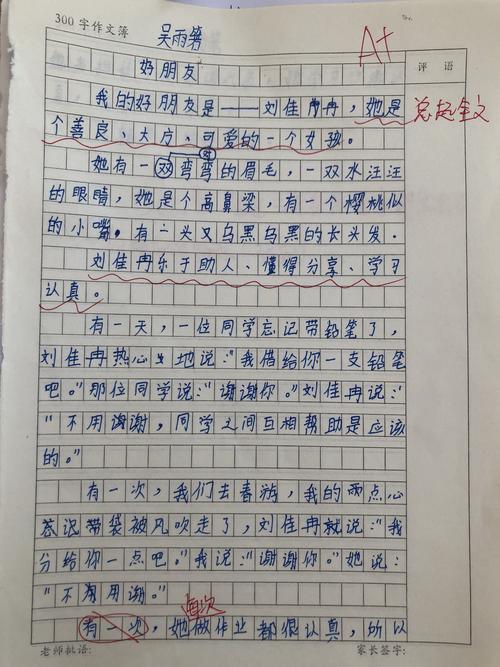 300字作文簿 吴雨箬
A+
评语
好朋友
我的好朋友是——刘佳冉,她是
总起全文
个善良、大方、可爱的一个女孩。
她有一双弯弯的眉毛,一双水汪汪
对
的眼睛,她是个高鼻梁,有一个樱桃似
的小嘴。有一头又乌黑乌黑的长头发。
刘佳冉乐于助人、懂得分享、学习
认真。
有一天,一位同学忘记带铅笔了,
刘佳冉热心地说:“我借给你一支铅笔
吧。”那位同学说:“谢谢你。”刘佳冉说:
“不用谢谢,同学之间互相帮助是应该
的。”
有一次,我们去春游,我的两点心
袋被风吹走了,刘佳冉就说:“我
分给你一点吧。”我说:“谢谢你。”她说:
“不用谢。”
每次
有一次,她做作业都很认真,所以
老师批语: 家长签字: